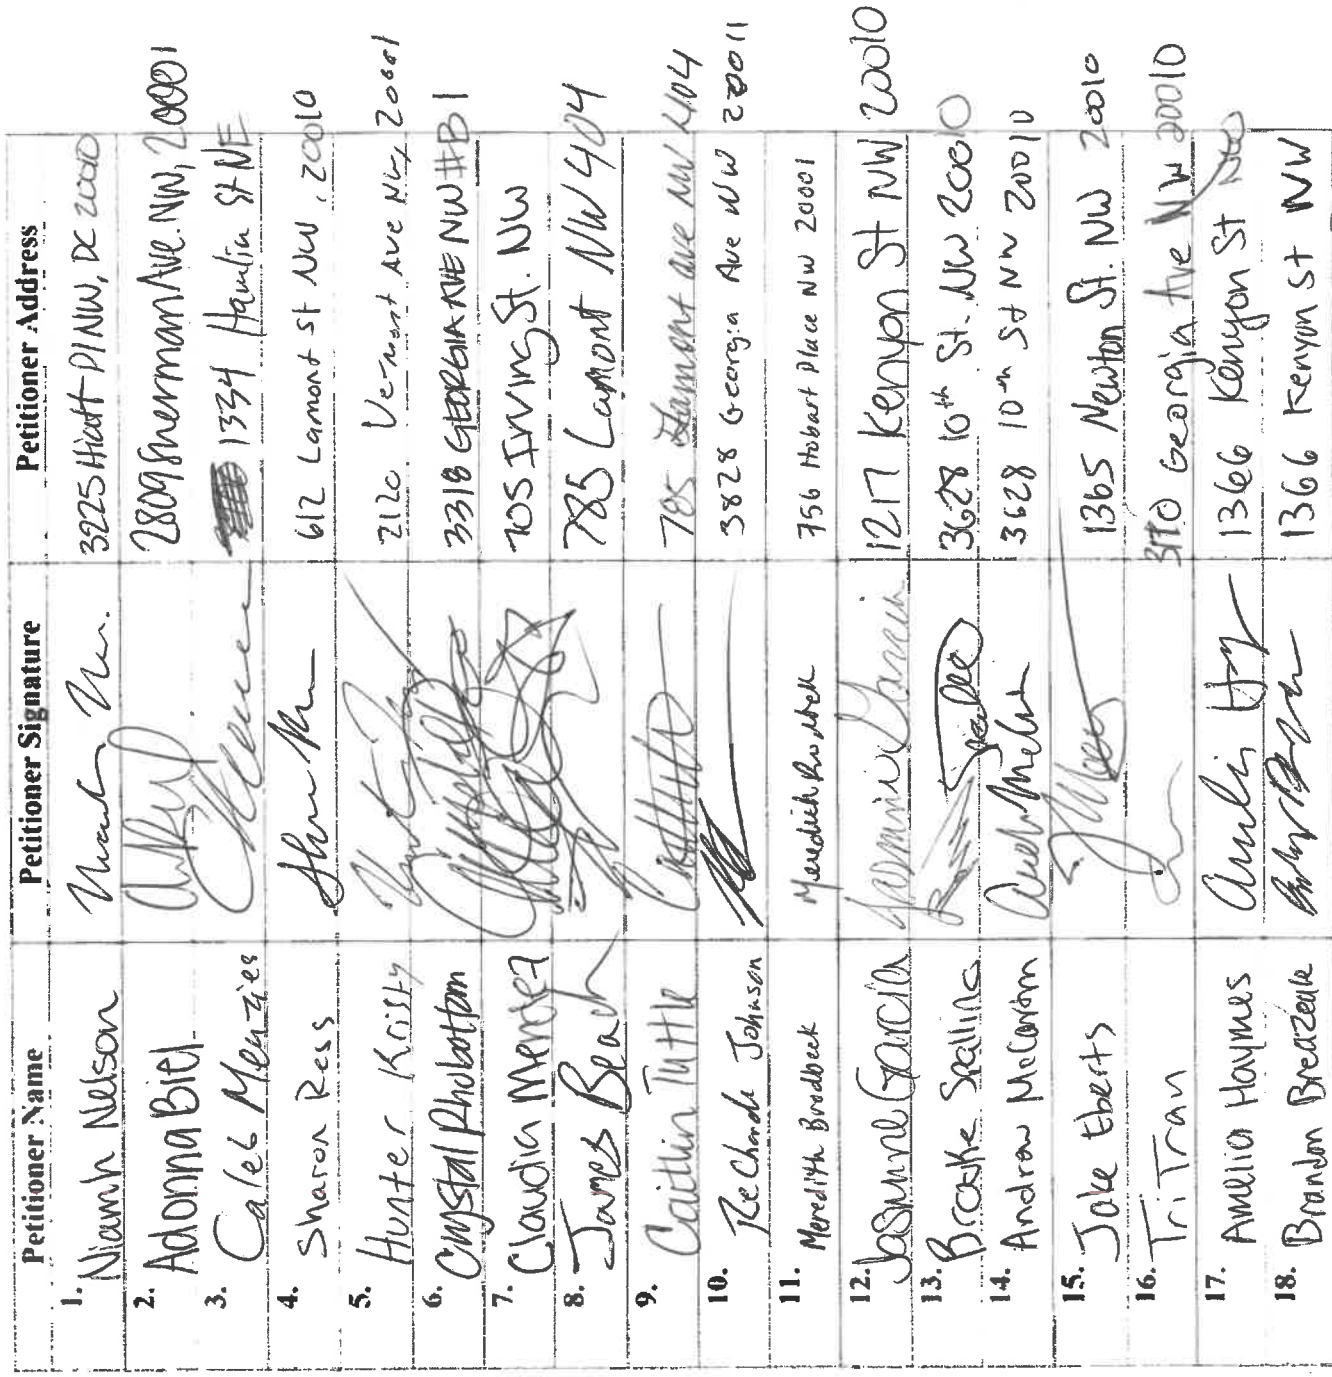 Petitioner Name Petitioner Signature Petitioner Address
1. Niamh Nelson 3225 Hiatt Pl NW, DC 20010
2. Adonna Biel 2809 Sherman Ave. NW, 20001
3. Caleb Menzies 1334 Hamlin St NE
4. Sharon Ress 612 Lamont St NW, 20010
5. Hunter Kristy 2120 Vermont Ave NW, 20001
6. Crystal Rhubottom 3318 GEORGIA AVE NW #B1
7. Claudia Mendez 705 Irving St. NW
8. James Beach 785 Lamont NW 404
9. Caitlin Tuttle 785 Lamont ave NW 404
10. ReChanda Johnson 3828 Georgia Ave NW 20011
11. Meredith Brodbeck Meredith Brodbeck 756 Hobart Place NW 20001
12. Jasmine Garcia Jasmine Garcia 1217 Kenyon St NW 20010
13. Brooke 3628 10th St. NW 20010
14. Andrew 3628 10th St NW 20010
15. Jake Eberts 1365 Newton St. NW 20010
16. Tri Tran Georgia Ave NW 20010
17. Amelia Haynes 1366 Kenyon St NW
18. Brandon Breazeale 1366 Kenyon St NW